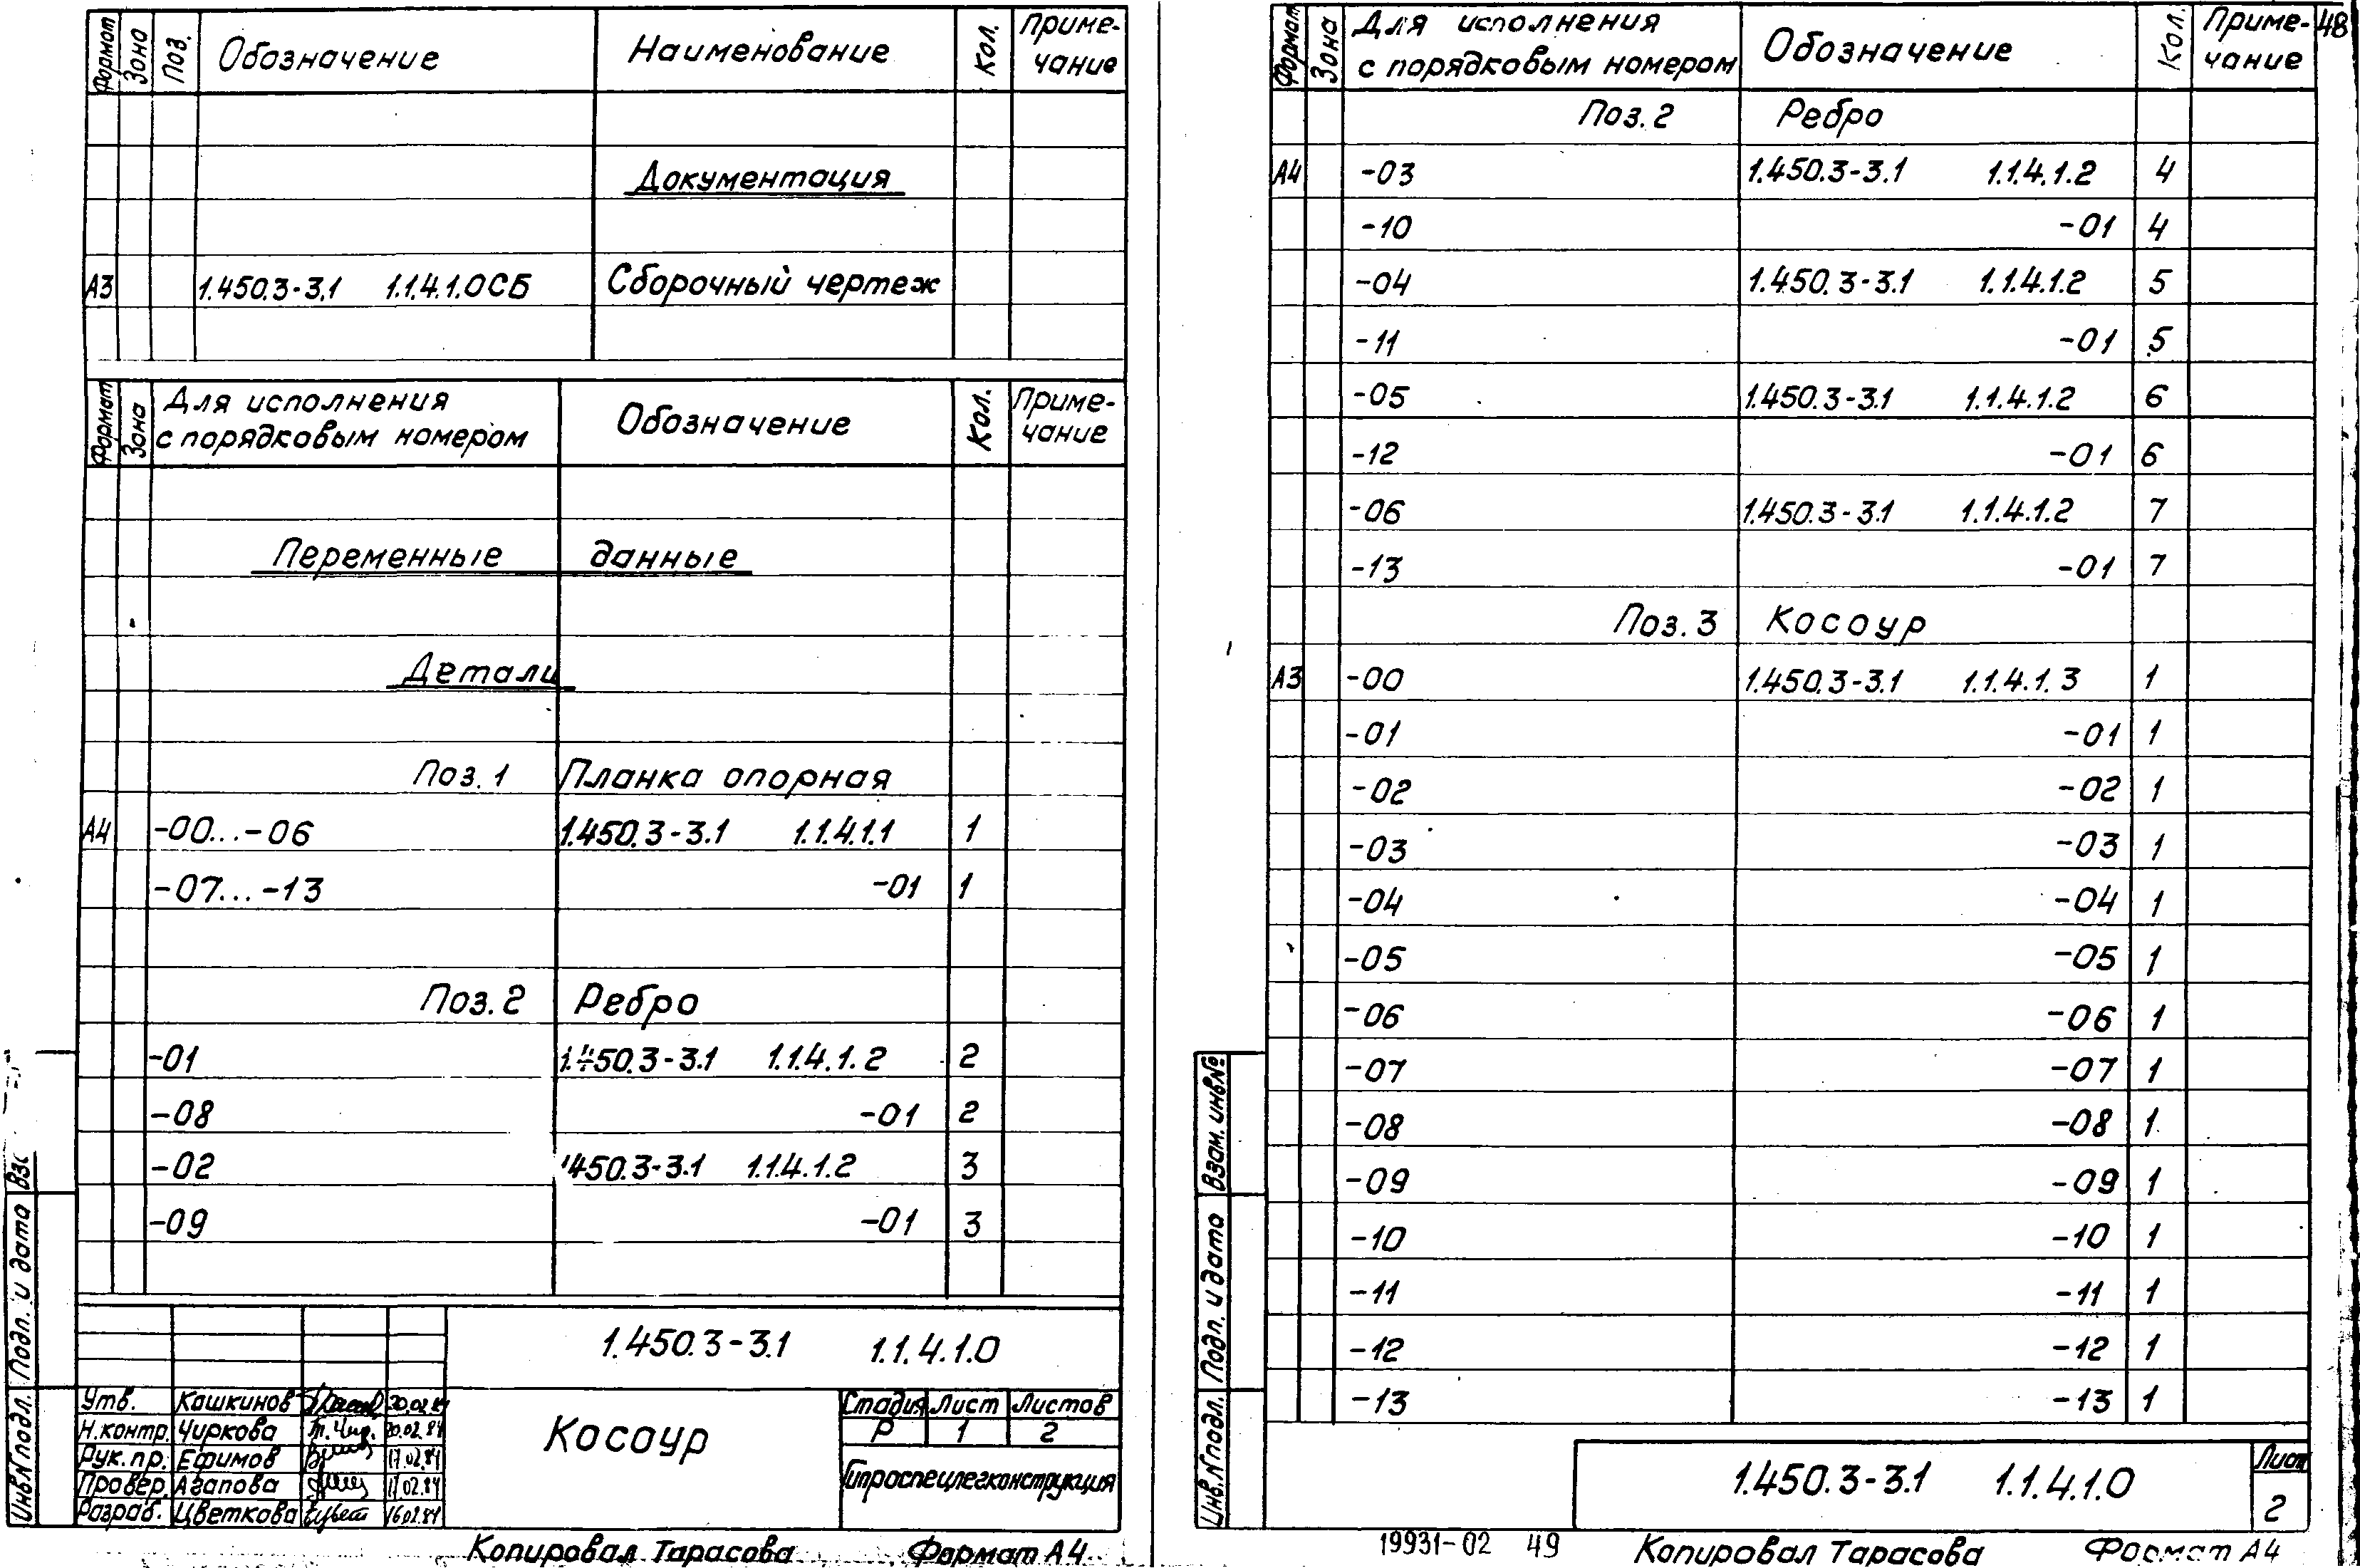 Формат Зона Поз. Обозначение Наименование Кол. Приме-
чание
Документация
А3 1.450.3-3.1 1.1.4.1.0СБ Сборочный чертеж
Формат Зона Для исполнения Обозначение Кол. Приме-
с порядковым номером чание
Переменные данные
Детали
Поз. 1 Планка опорная
А4 -00...-06 1.450.3-3.1 1.1.4.1.1 1
-07...-13 -01 1
Поз. 2 Ребро
-01 1.450.3-3.1 1.1.4.1.2 2
-08 -01 2
-02 1.450.3-3.1 1.1.4.1.2 3
-09 -01 3
1.450.3-3.1 1.1.4.1.0
Утв. Кашкинов 20.02.84
Н.контр. Чиркова 20.02.84
Рук.пр. Ефимов 17.02.84
Провер. Агапова 17.02.84
Разраб. Цветкова 16.02.84
Косоур
Стадия Лист Листов
Р 1 2
Гипроспецлегконструкция
Инв.N подл. Подп. и дата
Копировал Тарасова Формат А4
Формат Зона Для исполнения Обозначение Кол. Приме- 48
с порядковым номером чание
Поз. 2 Ребро
А4 -03 1.450.3-3.1 1.1.4.1.2 4
-10 -01 4
-04 1.450.3-3.1 1.1.4.1.2 5
-11 -01 5
-05 1.450.3-3.1 1.1.4.1.2 6
-12 -01 6
-06 1.450.3-3.1 1.1.4.1.2 7
-13 -01 7
Поз. 3 Косоур
А3 -00 1.450.3-3.1 1.1.4.1.3 1
-01 -01 1
-02 -02 1
-03 -03 1
-04 -04 1
-05 -05 1
-06 -06 1
-07 -07 1
-08 -08 1
-09 -09 1
-10 -10 1
-11 -11 1
-12 -12 1
-13 -13 1
Инв.N подл. Подп. и дата Взам. инв№
1.450.3-3.1 1.1.4.1.0
Лист
2
19931-02 49 Копировал Тарасова Формат А4